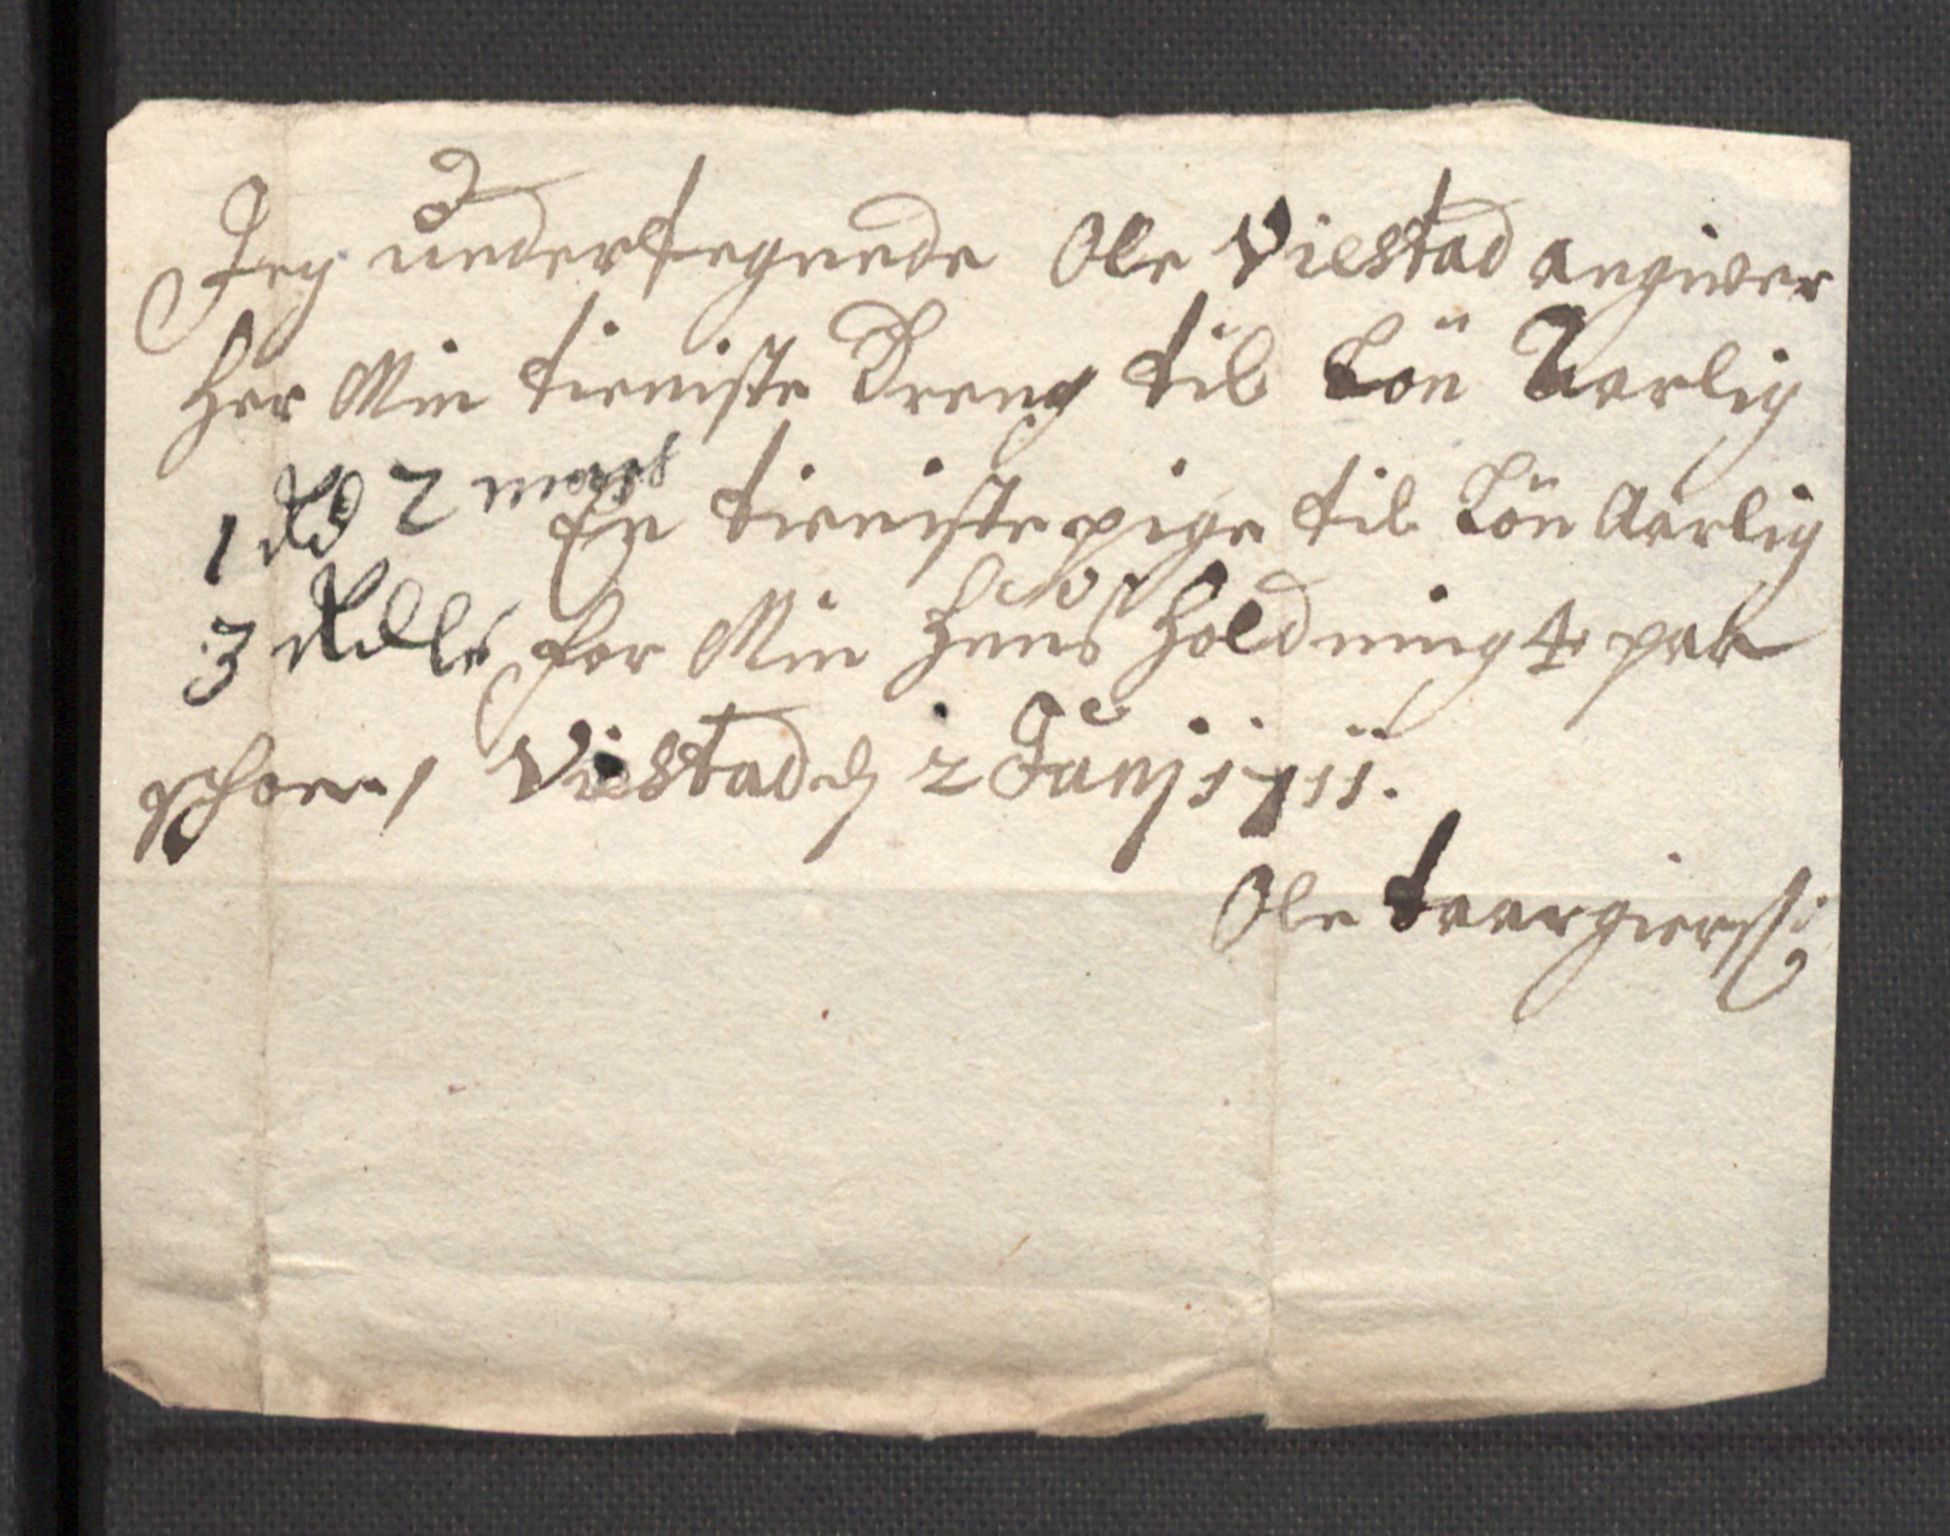 Jeg undertegnede Ole Viestad angiver
her Min tieniste Dreng til Lön Aarlig
1 Rd 2 mark En tieniste pige til Lön Aarlig
3 Rdlr for Min huus holdning 4 par
schoe / Viestad d 2 Junj 1711.
Ole taargierss: